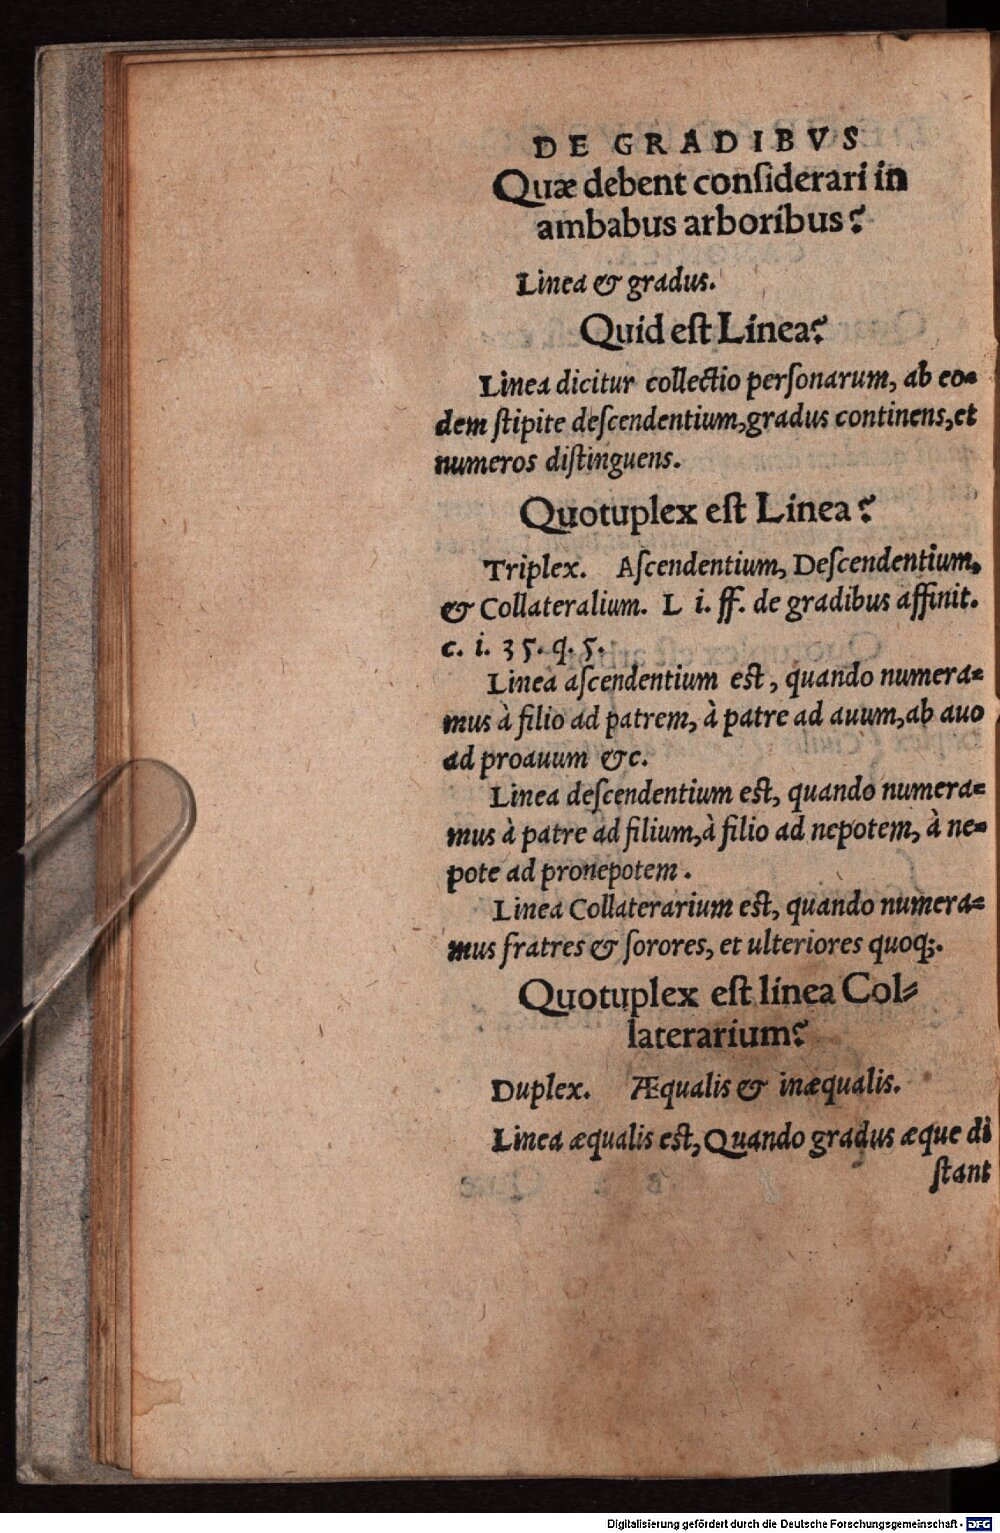 DE GRADIBVS
Quæ debent conſiderari in
ambabus arboribus?
Linea & gradus.
Quid eſt Linea?
Linea dicitur collectio perſonarum, ab eo-
dem ſtipite deſcendentium, gradus continens, et
numeros diſtinguens.
Quotuplex eſt Linea?
Triplex. Aſcendentium, Deſcendentium,
& Collateralium. L i. ff. de gradibus affinit.
c. i. 35. q. 5.
Linea aſcendentium eſt, quando numera=
mus à filio ad patrem, à patre ad auum, ab auo
ad proauum &c.
Linea deſcendentium eſt, quando numera=
mus à patre ad filium, à filio ad nepotem, à ne=
pote ad pronepotem.
Linea Collaterarium eſt, quando numera=
mus fratres & ſorores, et ulteriores quoq;.
Quotuplex eſt linea Col=
laterarium?
Duplex. Æqualis & inæqualis.
Linea æqualis eſt, Quando gradus æque di
ſtant
Digitalisierung gefördert durch die Deutsche Forschungsgemeinschaft - DFG